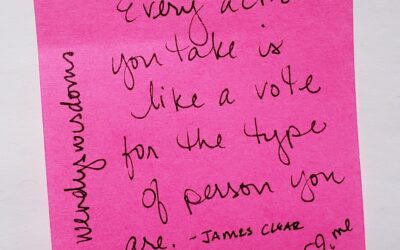 Every
you take is
like a vote
for the type
of person you
are. - JAMES CLEAR
wendyswisdoms